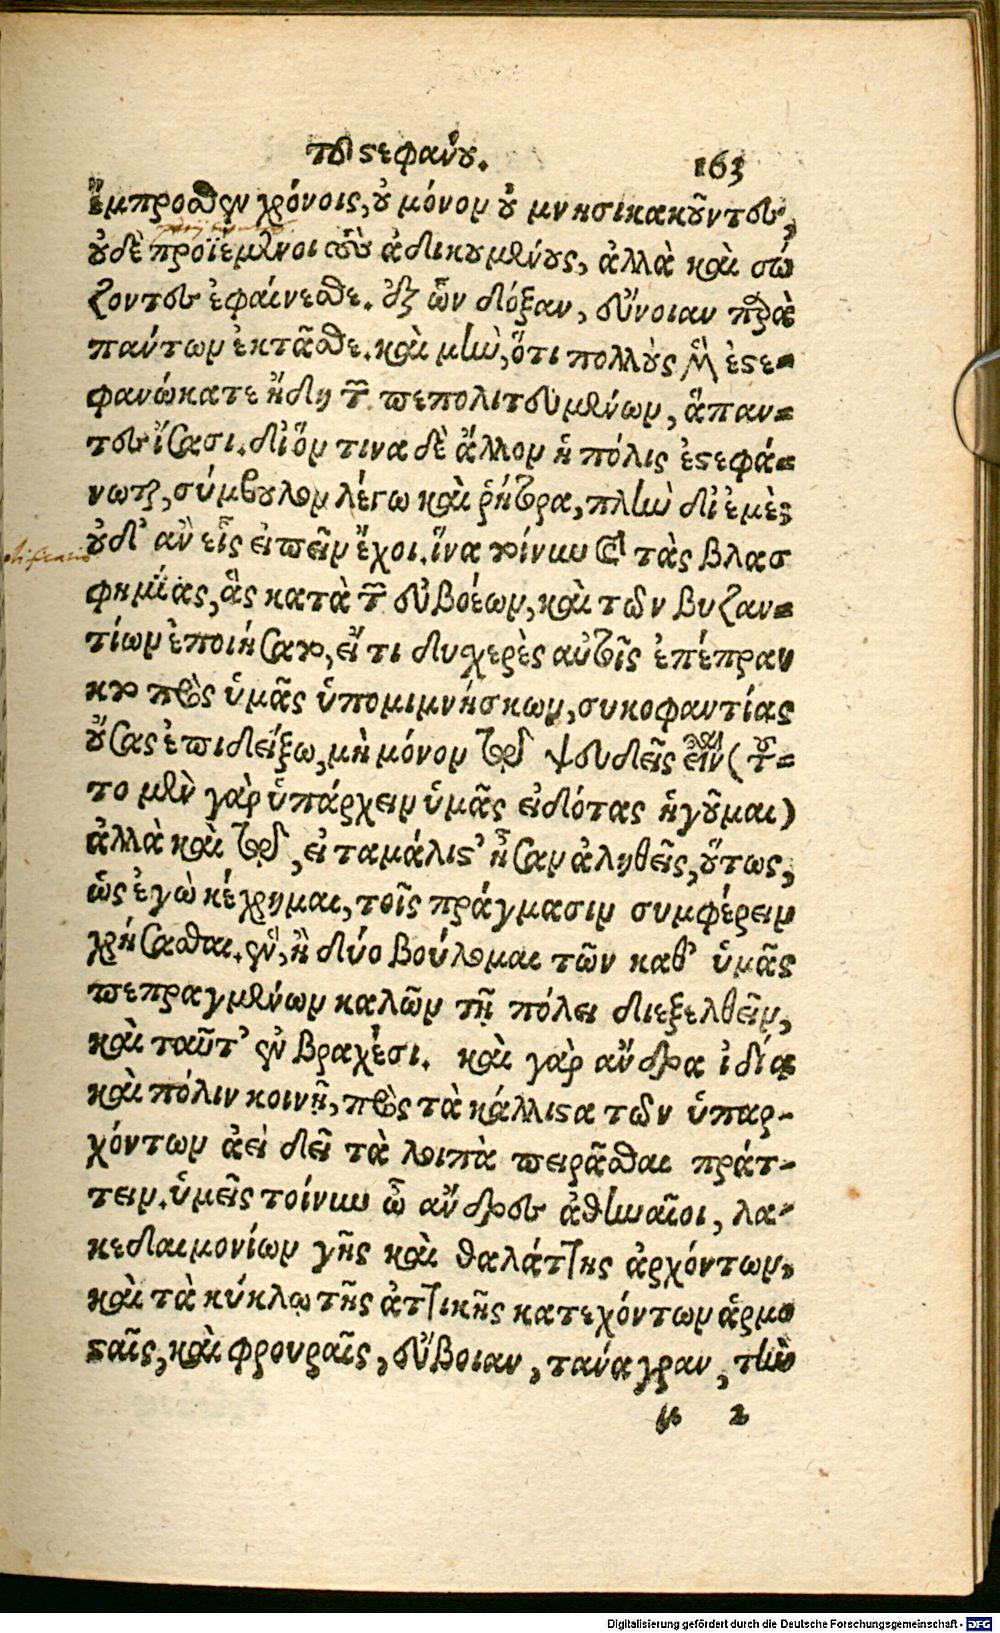 τοῦ στεφάνου. 163
ἔμπροσθεν χρόνοις, οὐ μόνον οὐ μνησικακοῦντες,
οὐδὲ προϊέμενοι τοὺς ἀδικουμένους, ἀλλὰ καὶ σώ
ζοντες ἐφαίνεσθε. ἐξ ὧν δόξαν, εὔνοιαν παρὰ
πάντων ἐκτᾶσθε. καὶ μὴν, ὅτι πολλοὺς μὲν ἐστε-
φανώκατε ἤδη τῶν πεπολιτευμένων, ἅπαν-
τες ἴσασι. δι' ὅν τινα δὲ ἄλλον ἡ πόλις ἐστεφά-
νωται, σύμβουλον λέγω καὶ ῥήτορα, πλὴν δι' ἐμὲ,
οὐδ' ἂν εἷς εἰπεῖν ἔχοι. ἵνα τοίνυν καὶ τὰς βλασ
φημίας, ἃς κατὰ τῶν εὐβοέων, καὶ τῶν βυζαν-
τίων ἐποιήσατο, εἴ τι δυχερὲς αὐτοῖς ἐπέπρα
κτο πρὸς ὑμᾶς ὑπομιμνήσκων, συκοφαντίας
οὔσας ἐπιδείξω, μὴ μόνον τῷ ψευδεῖς εἶναι (τοῦ-
το μὲν γὰρ ὑπάρχειν ὑμᾶς εἰδότας ἡγοῦμαι)
ἀλλὰ καὶ τῷ, εἰ ταμάλιστ' ἦσαν ἀληθεῖς, οὕτως,
ὡς ἐγὼ κέχρημαι, τοῖς πράγμασιν συμφέρειν
χρήσασθαι. ἓν, ἢ δύο βούλομαι τῶν καθ' ὑμᾶς
πεπραγμένων καλῶν τῇ πόλει διεξελθεῖν,
καὶ ταῦτ' ἐν βραχέσι. καὶ γὰρ ἄνδρα ἰδίᾳ
καὶ πόλιν κοινῇ, πρὸς τὰ κάλλιστα τῶν ὑπαρ-
χόντων ἀεὶ δεῖ τὰ λοιπὰ πειρᾶσθαι πράτ-
τειν. ὑμεῖς τοίνυν ὦ ἄνδρες ἀθηναῖοι, λα-
κεδαιμονίων γῆς καὶ θαλάττης ἀρχόντων,
καὶ τὰ κύκλῳ τῆς ἀττικῆς κατεχόντων ἁρμο
σταῖς, καὶ φρουραῖς, εὔβοιαν, τάναγραν, τὴν
2
Digitalisierung gefördert durch die Deutsche Forschungsgemeinschaft - DFG